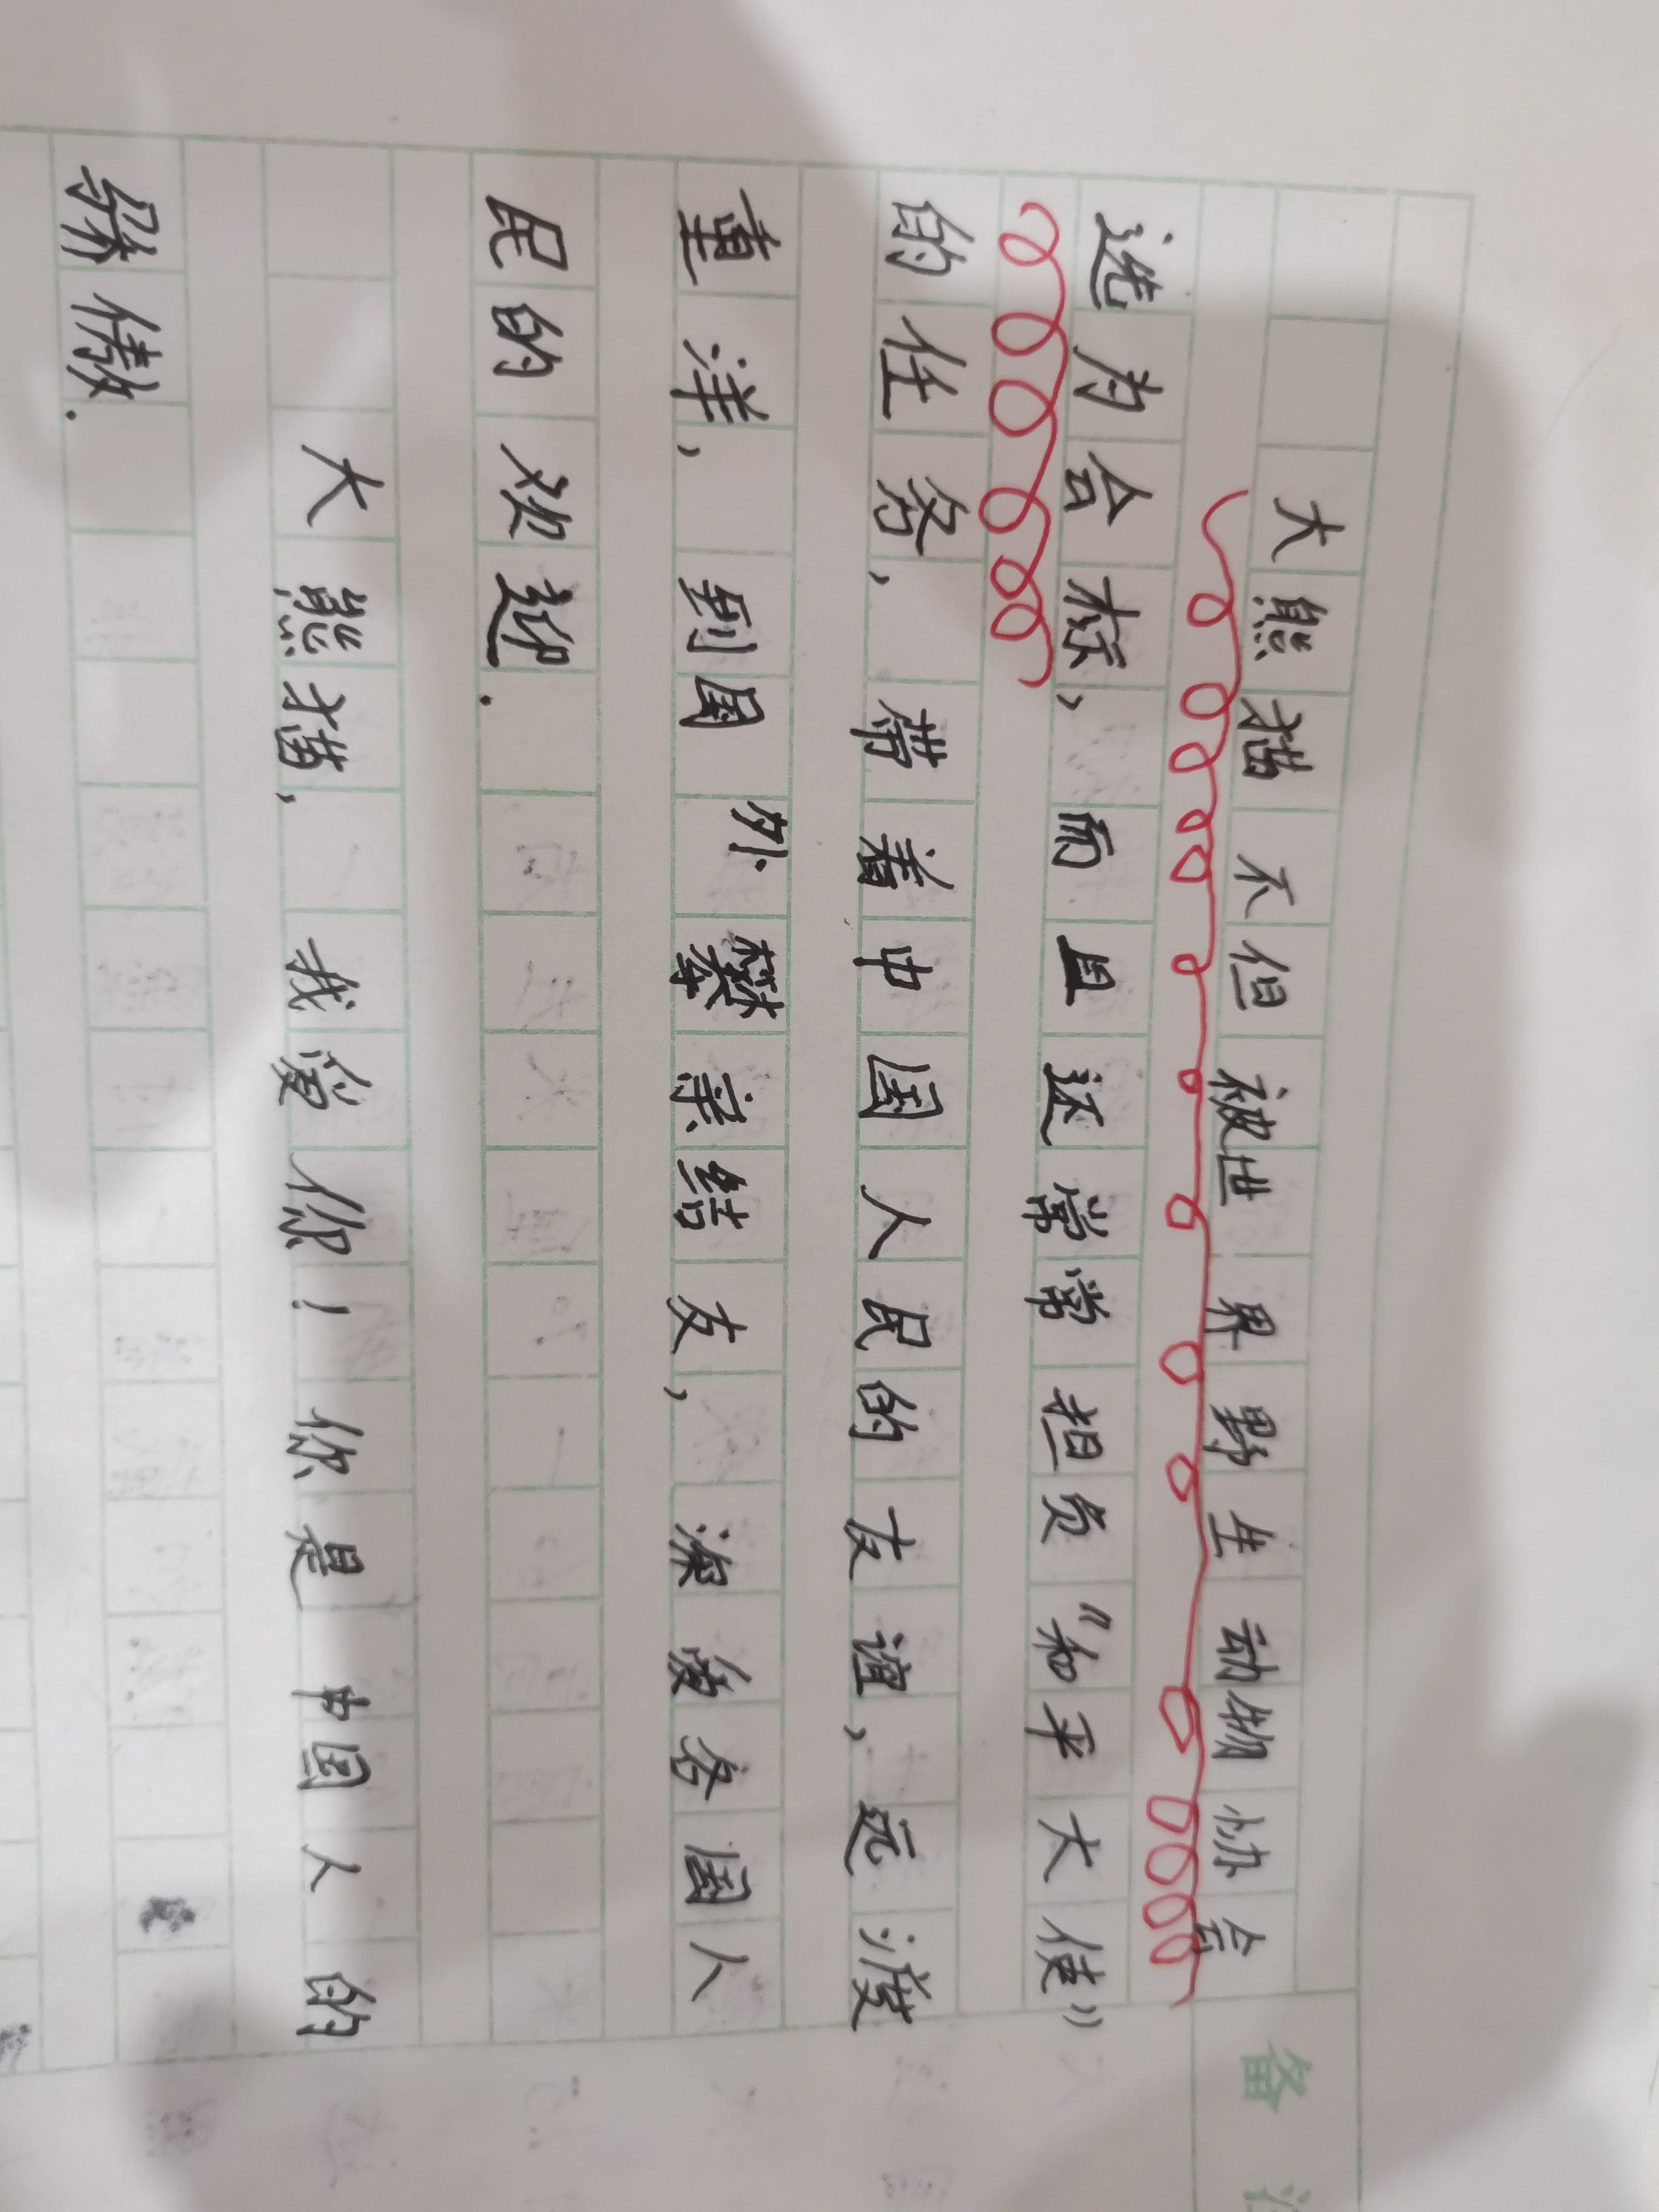 大熊猫不但被世界野生动物协会
选为会标，而且还常常担负“和平大使”
的任务，带着中国人民的友谊，远渡
重洋，到国外攀亲结友，深爱各国人
民的欢迎．
大熊猫，我爱你！你是中国人的
傲．
备注